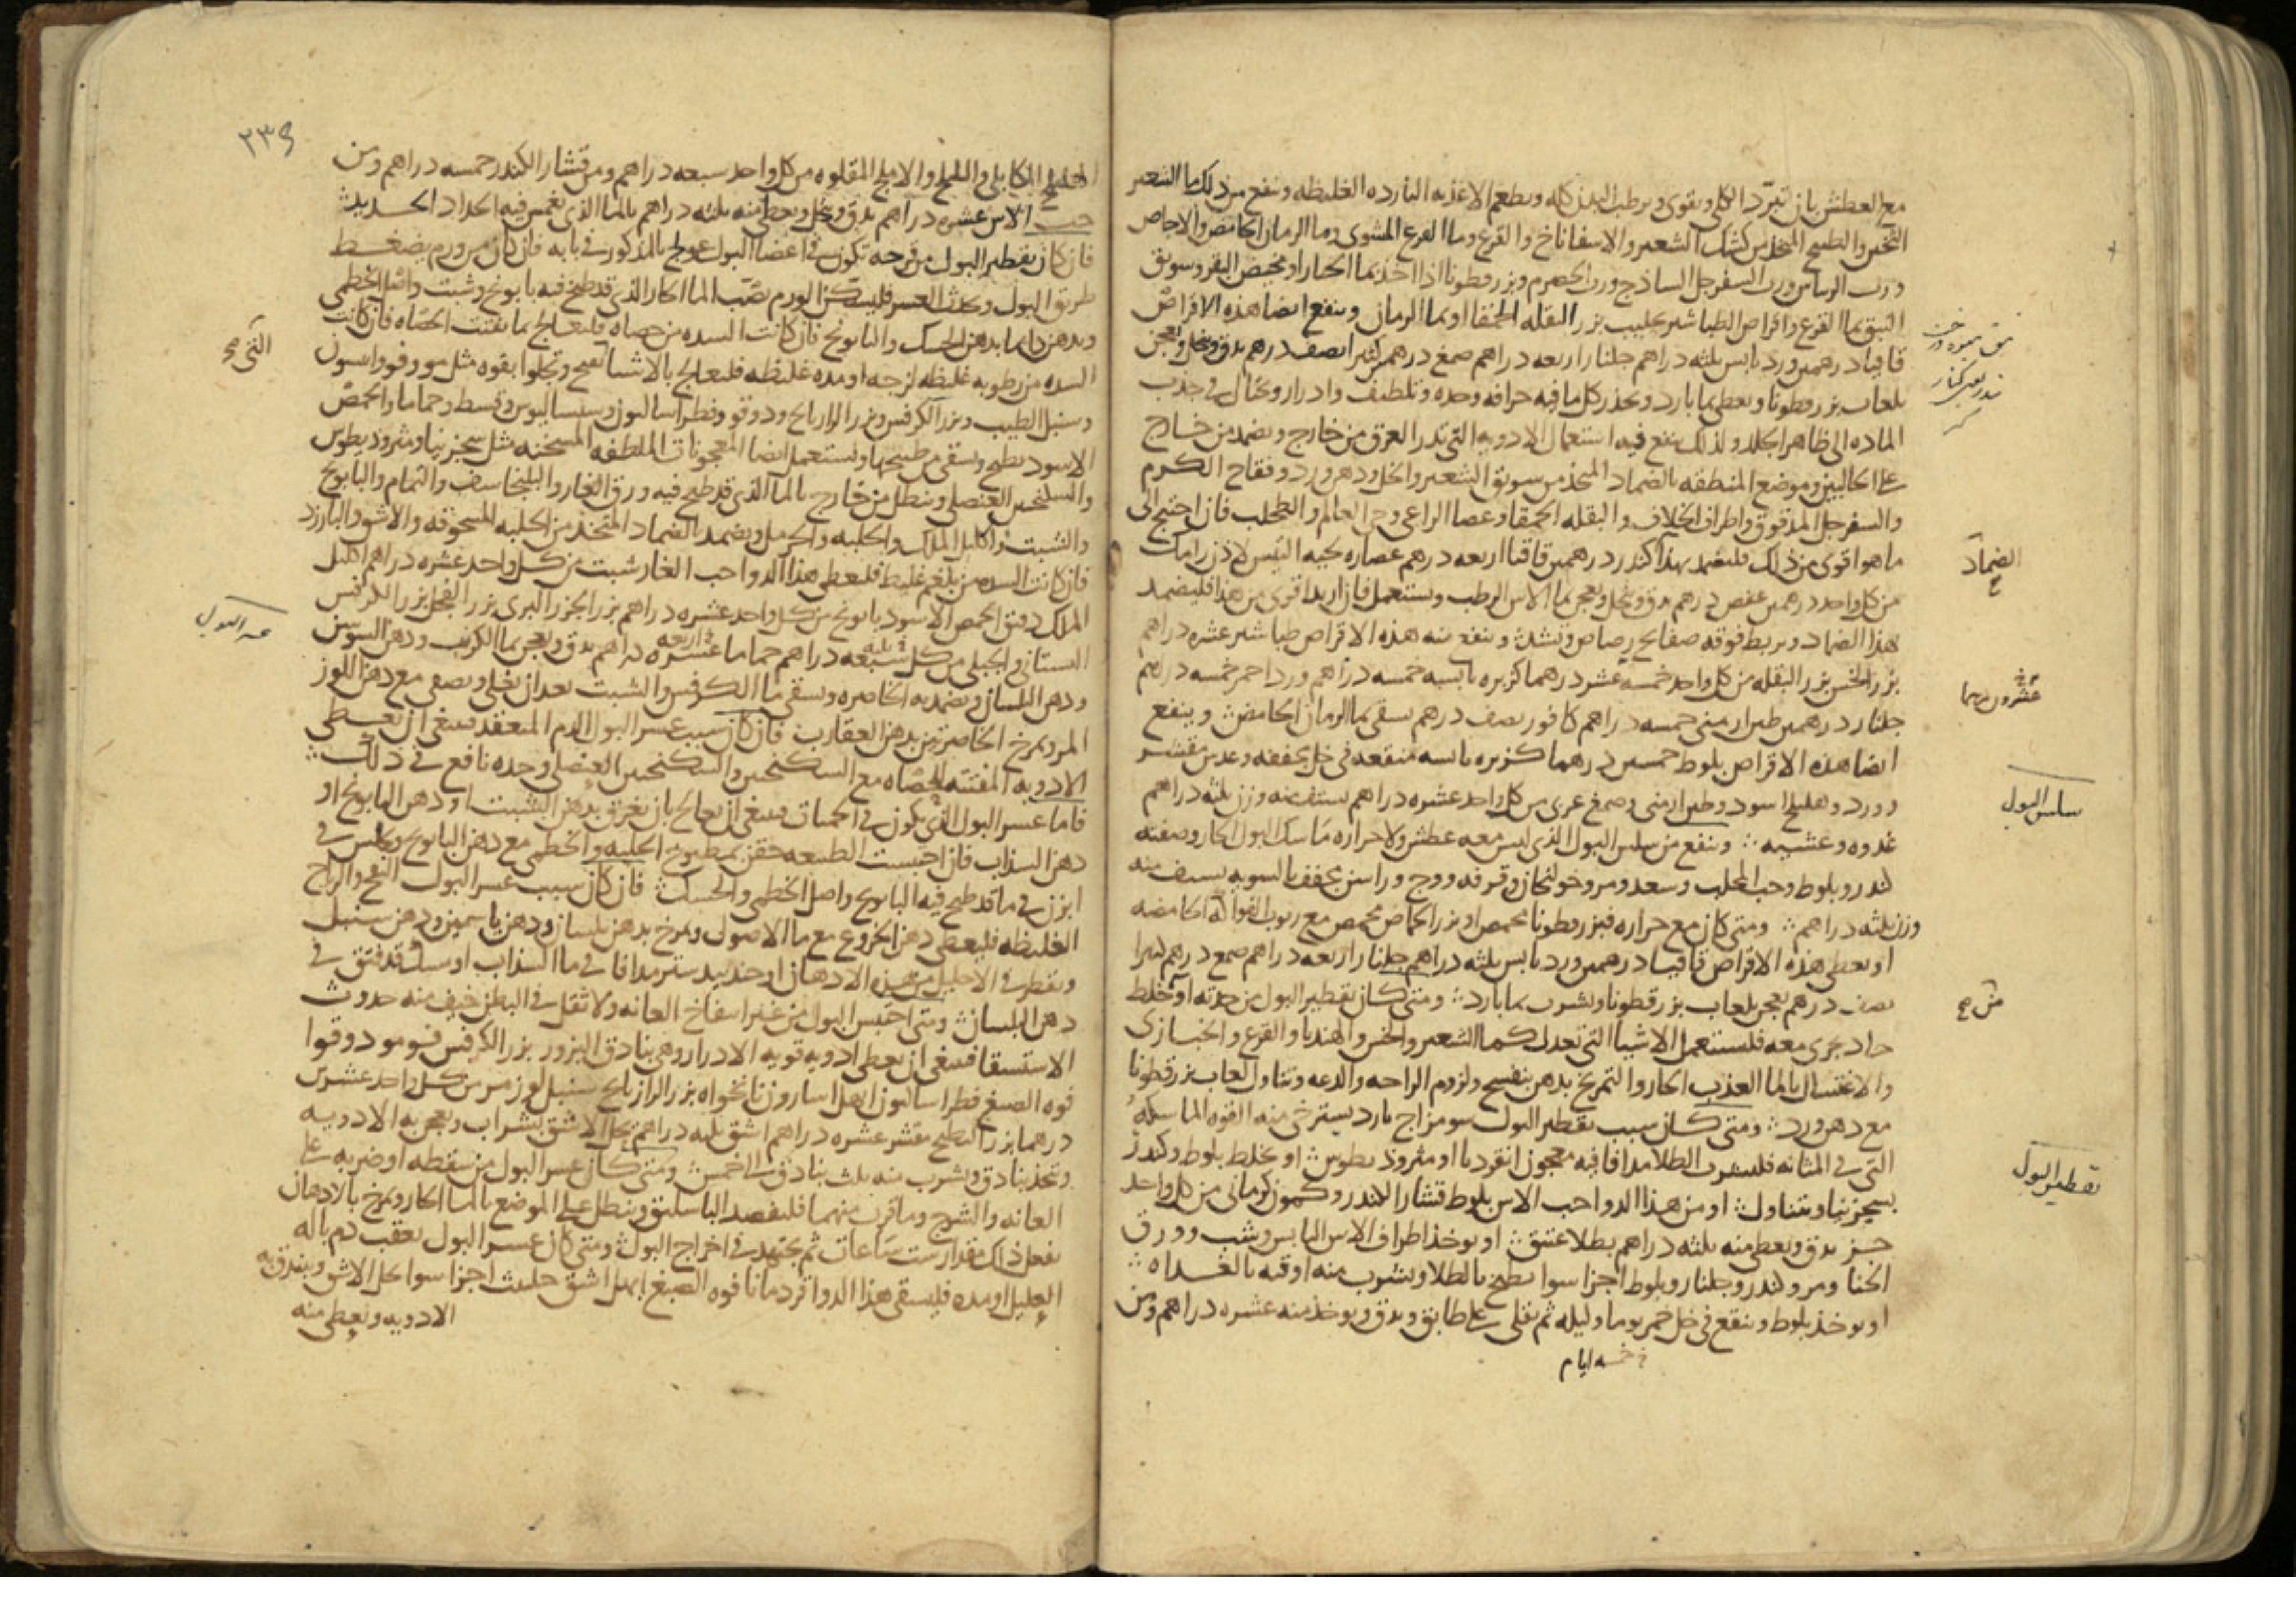 مع العطش بان تبرد الكلى وتقوى ويرطب البدن كله ويطعم الاغذيه البارده الغليظه وينفع من ذلك ما الشعير
الثخين والطبيخ المتخذ من كشك الشعير والاسفاناخ والقرع وما القرع المشوى وما الرمان الحامض والاجاص
ورب الريباس ورب السفرجل الساذج ورب الحصرم وبزر قطونا اذا اخذ بما الخيار او مخيض البقر وسويق
النبق بما القرع واقراص الطباشير بحليب بزر البقله الحمقا او بما الرمان وينفع ايضا هذه الاقراص
قاقيا درهمين ورد يابس ثلثه دراهم جلنار اربعه دراهم صمغ درهم كثيرا نصف درهم يدق وينخل ويعجن
بلعاب بزر قطونا ويعطى بما بارد ويحذر كل ما فيه حرافه وحده وتلطيف وادرار ويحتال في جذب
الماده الى ظاهر الجلد ولذلك ينفع فيه استعمال الادويه التي تدر العرق من خارج ويضمد من خارج
على الحالبين وموضع المنطقه بالضماد المتخذ من سويق الشعير والخل ودهن ورد وفقاح الكرم
والسفرجل المدقوق واطراف الخلاف والبقله الحمقا وعصا الراعي وحي العالم والطحلب فان احتيج الى
ما هو اقوى من ذلك فليضمد بهذا كندر درهمين قاقيا اربعه درهم عصاره لحيه التيس لاذن رامك
من كل واحد درهمين عفص درهم يدق وينخل ويعجن بما الاس الرطب ويستعمل فان اريد اقوى من هذا فليضمد
هذا الضماد ويربط فوقه صفائح رصاص وتشد وينفع منه هذه الاقراص طباشير عشره دراهم
بزر الخس بزر البقله من كل واحد خمسه عشر درهما كزبره يابسه خمسه دراهم ورد احمر خمسه دراهم
جلنار درهمين طين ارمني خمسه دراهم كافور نصف درهم يسقى بما الرمان الحامض وينفع
ايضا هذه الاقراص بلوط خمسين درهما كزبره يابسه منقعه في خل مجففه وعدس مقشر
وورد وهليلج اسود وطين ارمني وصمغ عربي من كل واحد عشره دراهم يستف منه وزن ثلثه دراهم
غدوه وعشيه وينفع من سلس البول الذي ليس معه عطش ولا حراره ماسك البول الحار وصفته
كندر وبلوط وحب المحلب وسعد ومر وخولنجان وقرفه ووج وراسن مجفف بالسويه يسف منه
وزن ثلثه دراهم ومتى كان مع حراره فبزر قطونا محمص او بزر الحماض محمص مع ربوب الفواكه الحامضه
او يعطى هذه الاقراص قاقيا درهمين ورد يابس ثلثه دراهم جلنار اربعه دراهم صمغ درهم كثيرا
نصف درهم يعجن بلعاب بزر قطونا ويشرب بما بارد ومتى كان تقطير البول من حدته او خلط
حاد يجري معه فليستعمل الاشيا التي تعدل كما الشعير والخس والهندبا والقرع والخبازى
والاغتسال بالما العذب الحار والتمريخ بدهن بنفسج ولزوم الراحه والدعه وتناول لعاب بزر قطونا
مع دهن ورد ومتى كان سبب تقطير البول سو مزاج بارد يسترخى منه القوه الماسكه
التي في المثانه فليشرب الطلا مدافا فيه معجون انقرديا او مثروذيطوس او يخلط بلوط وكندر
بسجزنيا ويتناول او من هذا الدوا حب الاس بلوط قشار الكندر وكمون كرماني من كل واحد
جز يدق ويعطى منه ثلثه دراهم بطلا عتيق او يوخذ اطراف الاس اليابس وشب وورق
الحنا ومر وكندر وجلنار وبلوط اجزا سوا يطبخ بالطلا ويشرب منه اوقيه بالغداه
او يوخذ بلوط وينقع في خل خمر يوما وليله ثم يقلى على طابق ويدق ويوخذ منه عشره دراهم ومن
خمسه ايام
الضماد
عشرون درهما
سلس البول
تقطير البول
٢٣٩
الهليلج الكابلي والبليلج والاملج المقلوه من كل واحد سبعه دراهم ومن قشار الكندر خمسه دراهم ومن
حب الاس عشره دراهم يدق وينخل ويعطى منه ثلثه دراهم بالما الذي يغمس فيه الحداد الحديد
فان كان تقطير البول من قرحه تكون في اعضا البول عولج بالمذكور في بابه فان كان من ورم يضغط
طريق البول وحدث العسر فليسكن الورم بصب الما الحار الذي قد طبخ فيه بابونج وشبت واصل الخطمى
وبدهن دايما بدهن الحسك والبابونج فان كانت السده من حصاه فليعالج بما يفتت الحصاه فان كانت
السده من رطوبه غليظه لزجه او مده غليظه فليعالج بالاشيا تفتح وتجلوا بقوه مثل مو وفو واسرون
وسنبل الطيب وبزر الكرفس وبزر الرازيانج ودوقو وفطراساليون وسيساليوس وقسط وحماما والحمص
الاسود يطبخ ويسقى من طبيخها ويستعمل ايضا المعجونات الملطفه المسخنه مثل سجزنيا ومثروذيطوس
والسكنجبين العنصلي وينطل من خارج بالما الذي قد طبخ فيه ورق الغار والبلنجاسف والنمام والبابونج
والشبت واكليل الملك والحلبه والحرمل ويضمد الضماد المتخذ من الحلبه المسحوقه والاشق والبارزد
فان كانت السده من بلغم غليظ فليعطى هذا الدوا حب الغار شبت من كل واحد عشره دراهم اكليل
الملك دقيق الحمص الاسود بابونج من كل واحد عشره دراهم بزر الجزر البرى بزر الفجل بزر الكرفس
البستاني والجبلي من كل سبعه دراهم حماما عشره دراهم يدق ويعجن بما الكرنب ودهن السوسن
ودهن البلسان ويضمد به الخاصره ويسقى ما الكرفس والشبت بعد ان يغلى ويصفى مع دهن اللوز
المر ويمرخ الخاصرتين بدهن العقارب فان كان سبب عسر البول الدم المنعقد فينبغى ان يعطى
الادويه المفتته للحصاه مع السكنجبين والسكنجبين العنصلي وحده نافع في ذلك
فاما عسر البول الذي يكون في الحميات فينبغى ان يعالج بان يغرق بدهن الشبت او دهن البابونج او
دهن السذاب فان احتبست الطبيعه حقن بمطبوخ الحلبه والخطمى مع دهن البابونج ويجلس في
ابزن في ما قد طبخ فيه البابونج واصل الخطمى والحسك فان كان سبب عسر البول النفخ والرياح
الغليظه فليعطى دهن الخروع مع ما الاصول ويمرخ بدهن بلسان ودهن ياسمين ودهن سنبل
ويقطر في الاحليل من هذه الادهان او جندبيدستر مدافا في ما السذاب او مسك قد فتق في
دهن البلسان ومتى احتبس البول من غير انتفاخ العانه ولا ثقل في البطن خيف منه حدوث
الاستسقا فينبغى ان يعطى ادويه قويه الادرار وهي بنادق البزور بزر الكرفس فو مو دوقوا
فوه الصبغ فطراساليون ابهل اسارون نانخواه بزر الرازيانج سنبل لوز مر من كل واحد عشرين
درهما بزر البطيخ مقشر عشره دراهم اشق ثلثه دراهم يحل الاشق بشراب ويعجن به الادويه
ويتخذ بنادق ويشرب منه ثلث بنادق الى الخمس ومتى كان عسر البول من سقطه او ضربه على
العانه والشرج وما قرب منهما فليفصد الباسليق وينطل على الموضع بالما الحار ويمرخ بالادهان
يفعل ذلك مقدار ست ساعات ثم يجتهد في اخراج البول ومتى كان عسر البول يعقب دم باله
العليل او مده فليسقى هذا الدوا قردمانا فوه الصبغ ابهل اشق حلتيت اجزا سوا يحل الاشق ويبندق به
الادويه ويعطى منه
عسر البول